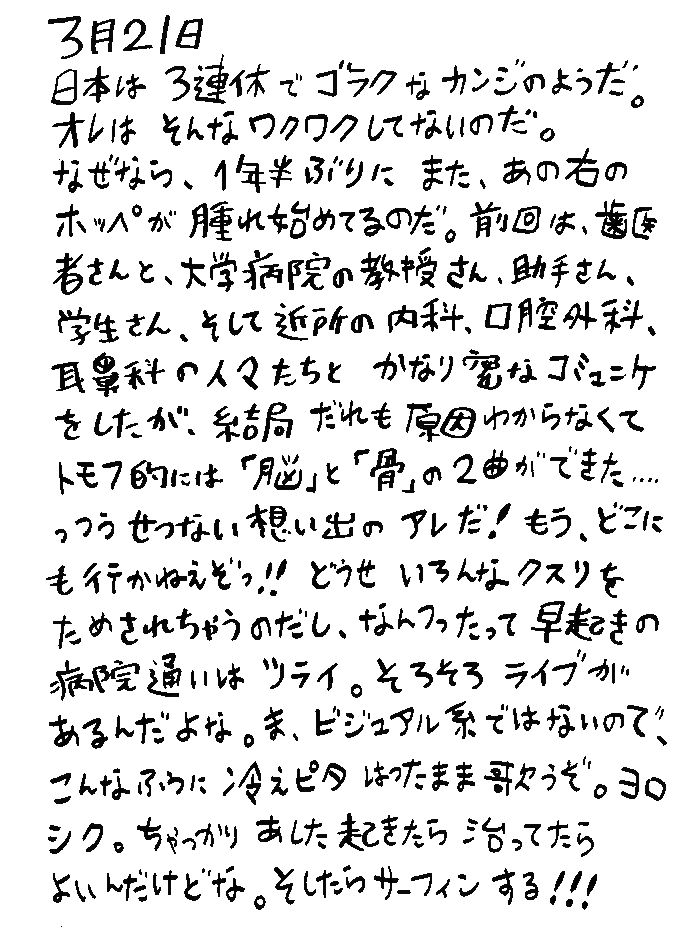 3月21日
日本は 3連休で ゴラクな カンジのようだ。
オレは そんなワクワクしてないのだ。
なぜなら、1年半ぶりに また、あの右の
ホッペが 腫れ始めてるのだ。前回は、歯医
者さんと、大学病院の教授さん、助手さん、
学生さん、そして近所の内科、口腔外科、
耳鼻科の人々たちと かなり密なコミュニケ
をしたが、結局 だれも 原因わからなくて
トモフ的には「脳」と「骨」の2曲ができた....
っつう せつない想い出の アレだ!もう、どこに
も行かねえぞっ!! どうせ いろんなクスリを
ためされちゃうのだし、なんつったって 早起きの
病院通いは ツライ。そろそろ ライブが
あるんだよな。ま、ビジュアル系ではないので、
こんなふうに 冷えピタ はったまま 歌うぞ。ヨロ
シク。ちゃっかり あした起きたら 治ってたら
よいんだけどな。そしたらサーフィン する!!!